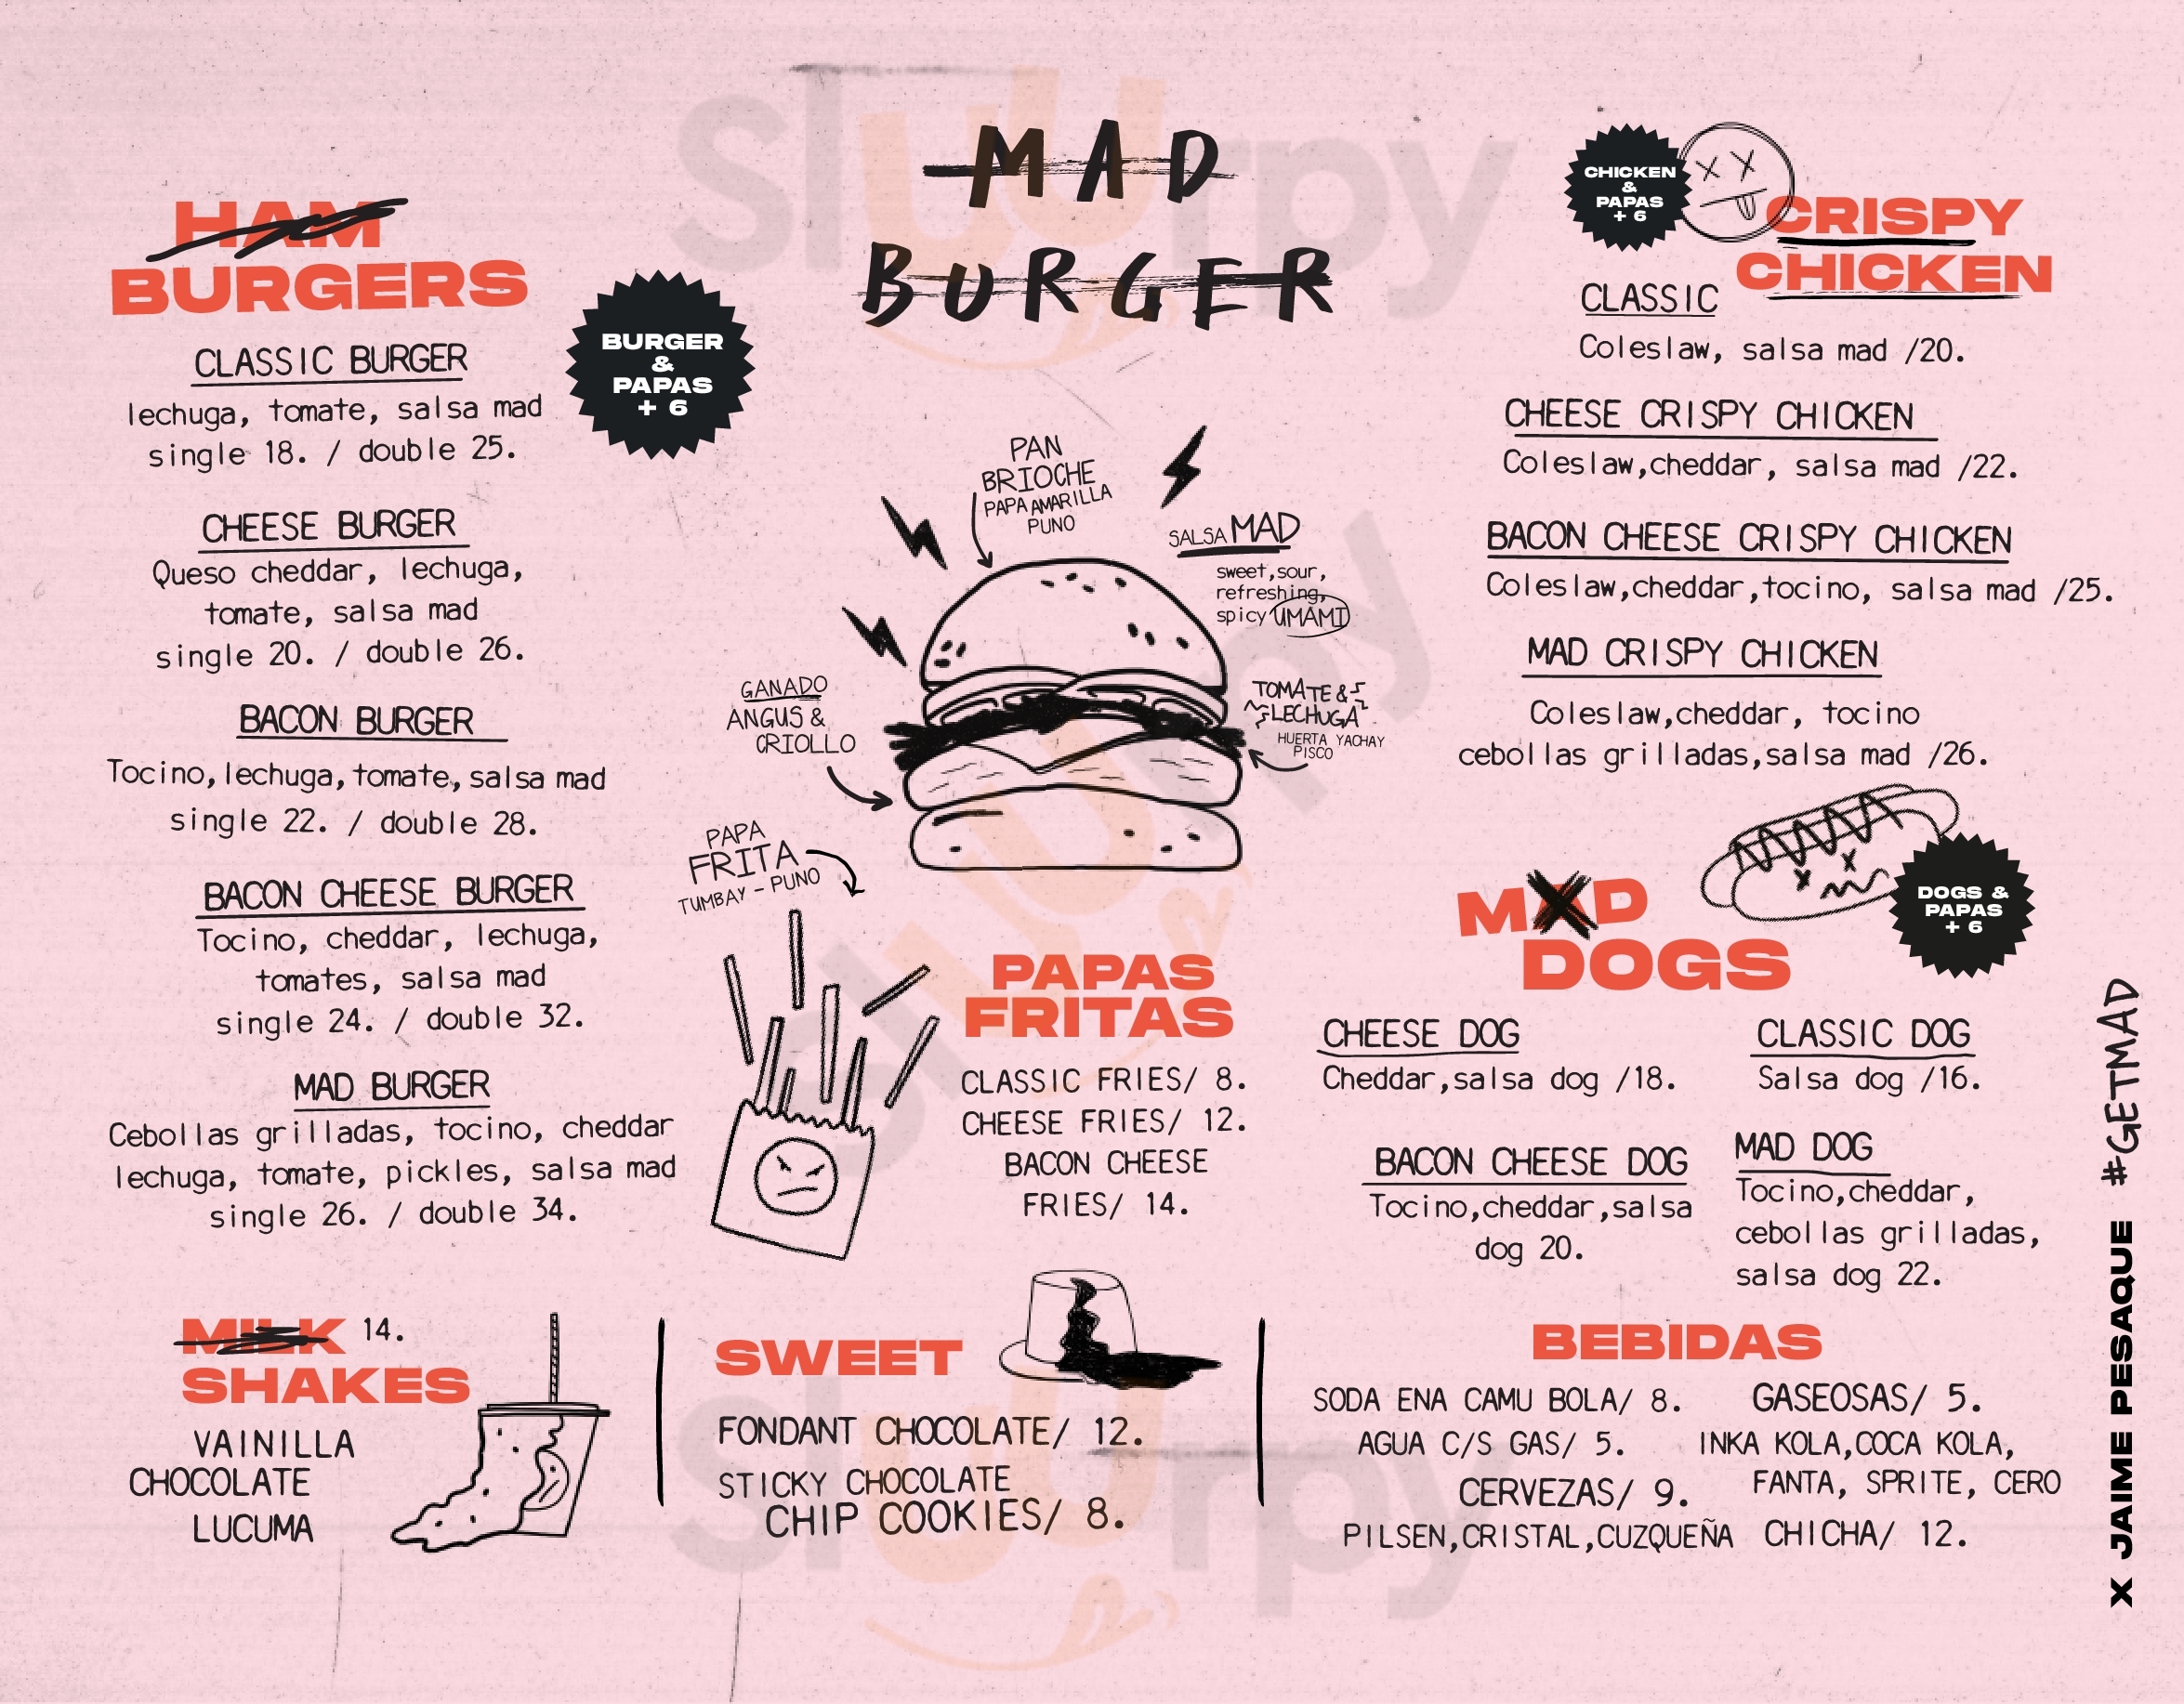 MAD
BURGER
HAM
BURGERS
BURGER
&
PAPAS
+ 6
CLASSIC BURGER
lechuga, tomate, salsa mad
single 18. / double 25.
CHEESE BURGER
Queso cheddar, lechuga,
tomate, salsa mad
single 20. / double 26.
BACON BURGER
Tocino,lechuga,tomate,salsa mad
single 22. / double 28.
BACON CHEESE BURGER
Tocino, cheddar, lechuga,
tomates, salsa mad
single 24. / double 32.
MAD BURGER
Cebollas grilladas, tocino, cheddar
lechuga, tomate, pickles, salsa mad
single 26. / double 34.
PAN
BRIOCHE
PAPA AMARILLA
PUNO
SALSA MAD
sweet,sour,
refreshing,
spicy UMAMI
GANADO
ANGUS &
CRIOLLO
TOMATE &
LECHUGA
HUERTA YACHAY
PISCO
PAPA
FRITA
TUMBAY - PUNO
PAPAS
FRITAS
CLASSIC FRIES/ 8.
CHEESE FRIES/ 12.
BACON CHEESE
FRIES/ 14.
CHICKEN
&
PAPAS
+ 6
CRISPY
CHICKEN
CLASSIC
Coleslaw, salsa mad /20.
CHEESE CRISPY CHICKEN
Coleslaw,cheddar, salsa mad /22.
BACON CHEESE CRISPY CHICKEN
Coleslaw,cheddar,tocino, salsa mad /25.
MAD CRISPY CHICKEN
Coleslaw,cheddar, tocino
cebollas grilladas,salsa mad /26.
MAD
DOGS
DOGS &
PAPAS
+ 6
CHEESE DOG
Cheddar,salsa dog /18.
CLASSIC DOG
Salsa dog /16.
BACON CHEESE DOG
Tocino,cheddar,salsa
dog 20.
MAD DOG
Tocino,cheddar,
cebollas grilladas,
salsa dog 22.
MILK 14.
SHAKES
VAINILLA
CHOCOLATE
LUCUMA
SWEET
FONDANT CHOCOLATE/ 12.
STICKY CHOCOLATE
CHIP COOKIES/ 8.
BEBIDAS
SODA ENA CAMU BOLA/ 8.
AGUA C/S GAS/ 5.
CERVEZAS/ 9.
PILSEN,CRISTAL,CUZQUEÑA
GASEOSAS/ 5.
INKA KOLA,COCA KOLA,
FANTA, SPRITE, CERO
CHICHA/ 12.
X JAIME PESAQUE #GETMAD
Sluurpy
Sluurpy
Sluurpy